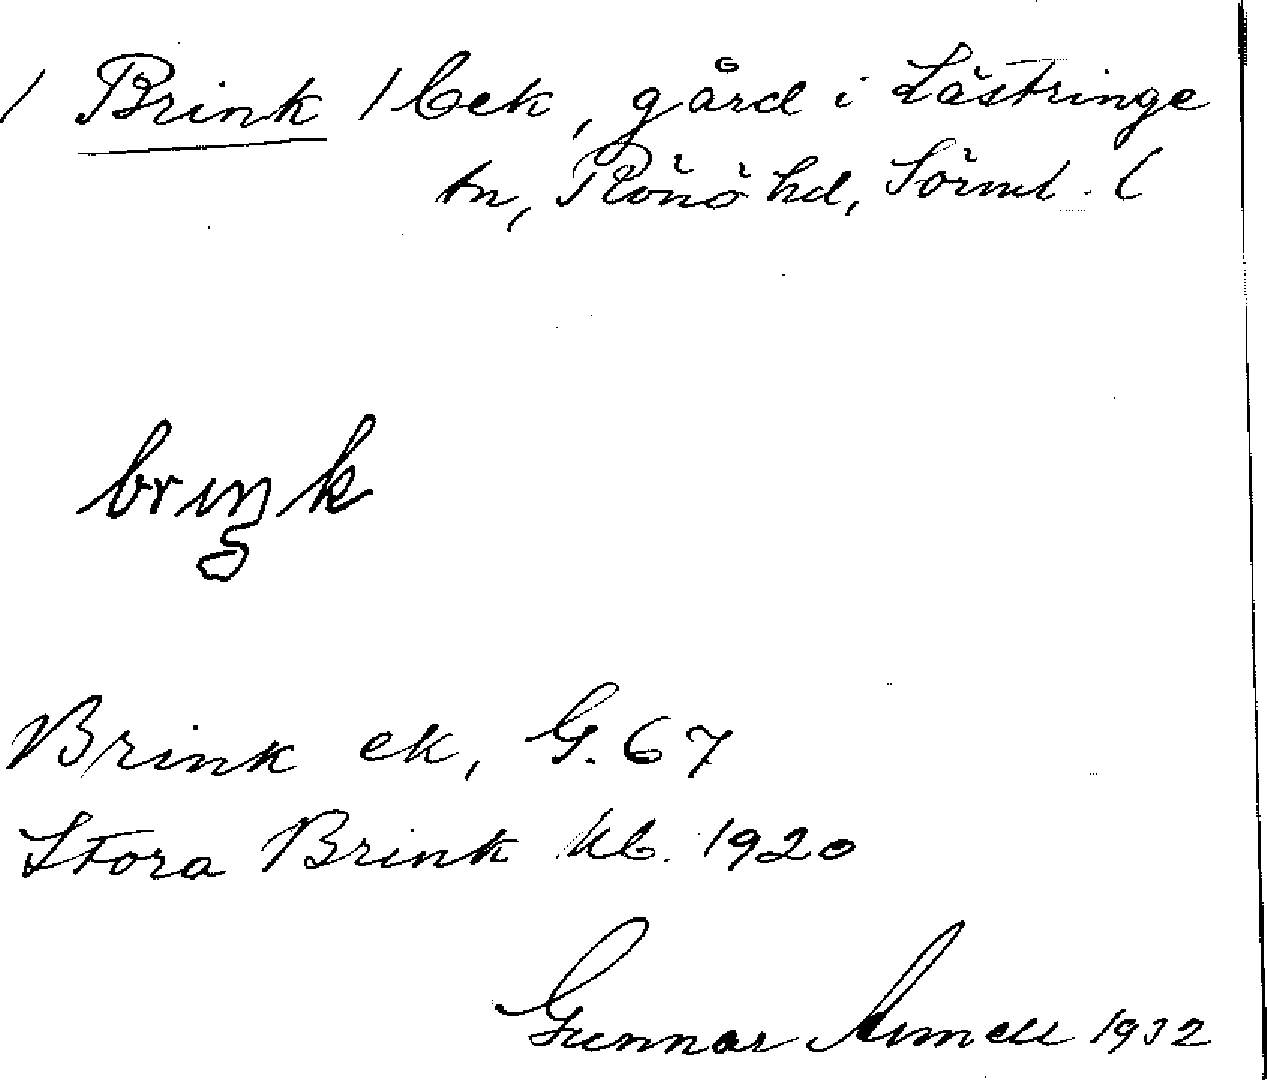 / Brink / Cek, gård i Lästringe
sn, Rönö hd, Sörml. (
briŋk
Brink ek, G. 67
Stora Brink kb. 1920
Gunnar 1932